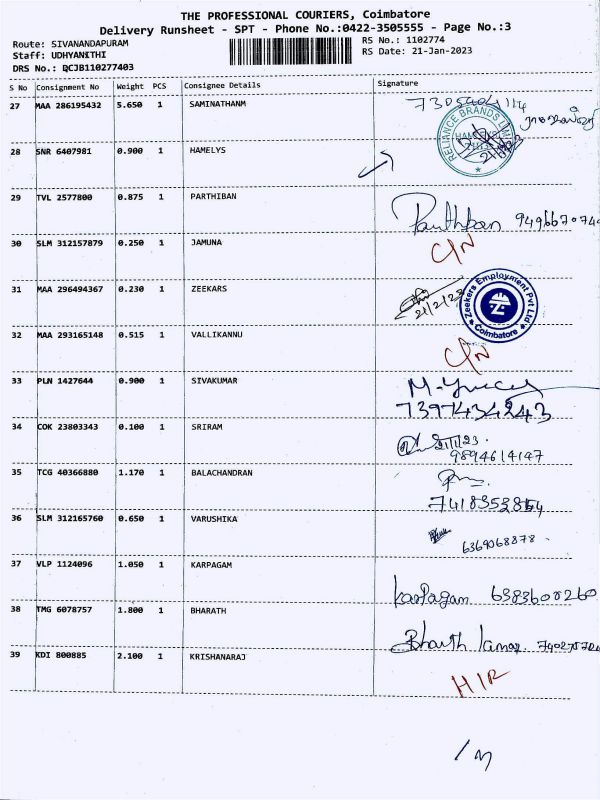 THE PROFESSIONAL COURIERS, Coimbatore
Delivery Runsheet - SPT - Phone No.:0422-3505555 - Page No.:3
Route: SIVANANDAPURAM RS No.: 1102774
Staff: UDHYANITHI RS Date: 21-Jan-2023
DRS No.: QCJB110277403
S No Consignment No Weight PCS Consignee Details Signature
27 MAA 286195432 5.650 1 SAMINATHANM
RELIANCE BRANDS LIMITED
28 SNR 6407981 0.900 1 HAMELYS
29 TVL 2577800 0.875 1 PARTHIBAN Parthiban
30 SLM 312157879 0.250 1 JAMUNA C/N
31 MAA 296494367 0.230 1 ZEEKARS 21/2/23 Zeekers Employment Pvt Ltd Coimbatore
32 MAA 293165148 0.515 1 VALLIKANNU C/N
33 PLN 1427644 0.900 1 SIVAKUMAR
7397434243
34 COK 23803343 0.100 1 SRIRAM
9894614147
35 TCG 40366880 1.170 1 BALACHANDRAN
36 SLM 312165760 0.650 1 VARUSHIKA
6369068878
37 VLP 1124096 1.050 1 KARPAGAM Karpagam 6383600260
38 TMG 6078757 1.800 1 BHARATH Bharath Kumar
39 KDI 800885 2.100 1 KRISHANARAJ H/R